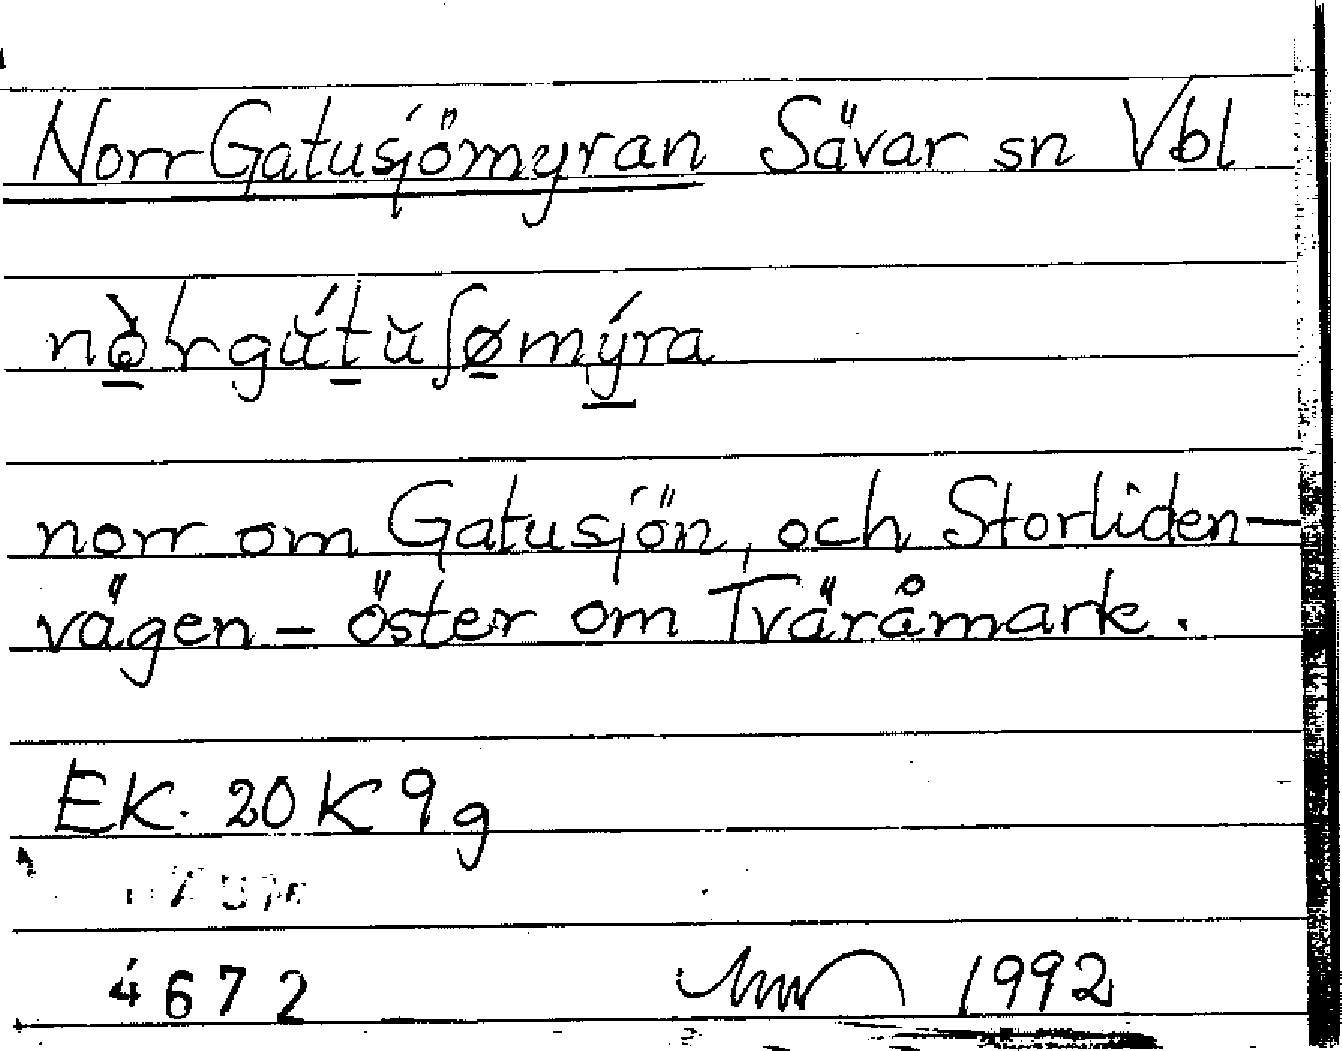 NorrGatusjömyran Sävar sn Vbl
norr om Gatusjön, och Storliden-
vägen – öster om Tväråmark.
EK. 20K 9g
4672 1992